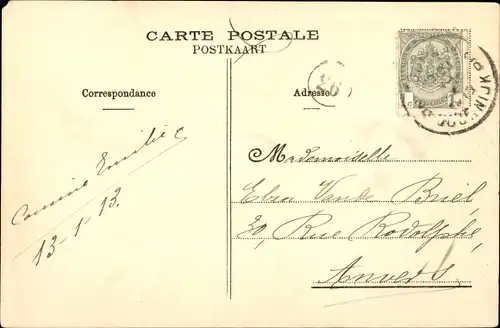 CARTE POSTALE
POSTKAART
Correspondance
Adresse
Cousine Emilie
13-1-13.
Mademoiselle
Elsa Vande Briel,
30, Rue Rodolphe,
Anvers